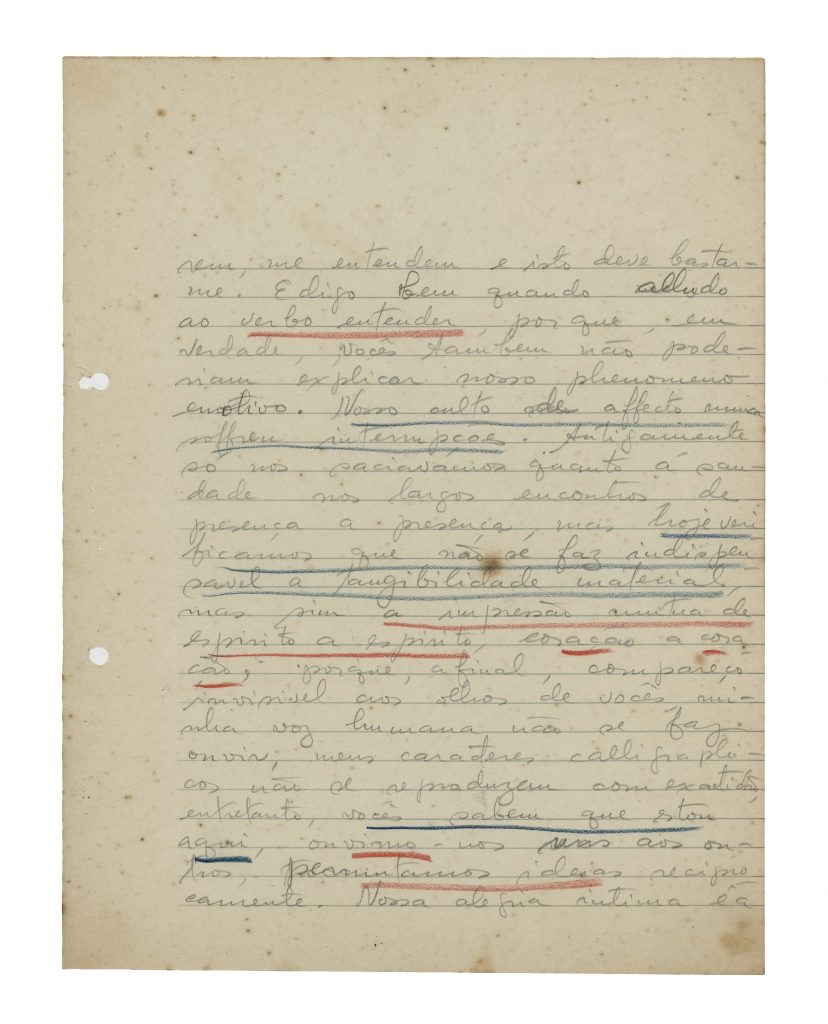 rem, me entendem e isto deve bastar-
me. E digo bem quando alludo
ao verbo entender, porque, em
verdade, vocês tambem não pode-
riam explicar nosso phenomeno
emotivo. Nosso culto de affecto nunca
soffreu interrupções. Antigamente
só nos saciavamos quanto á sau-
dade nos largos encontros de
presença a presença, mas hoje veri
ficamos que não se faz indispen
savel a tangibilidade material,
mas sim a impressão mutua de
espirito a espirito, coração a cora
ção; porque, afinal, compareço
invisivel aos olhos de vocês mi-
nha voz humana não se faz
ouvir, meus carateres calligraphi-
cos não se reproduzem com exactidão,
entretanto, vocês sabem que estou
aqui, ouvimo-nos uns aos ou-
tros, permutamos ideias recipro
camente. Nossa alegria intima é a